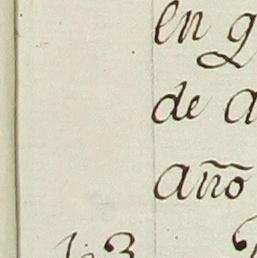 en q
de a
año